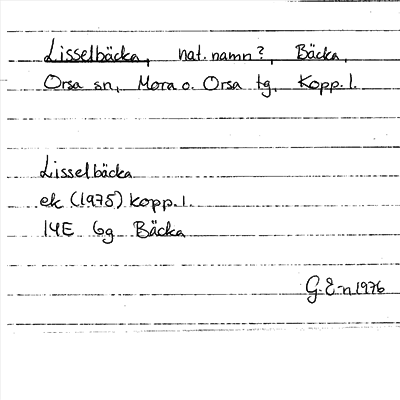 Lisselbäcka, nat.namn?, Bäcka,
Orsa sn, Mora o. Orsa tg, Kopp.l.
Lisselbäcka
ek (1975) Kopp.l.
14E 6g Bäcka
G.E-n 1976